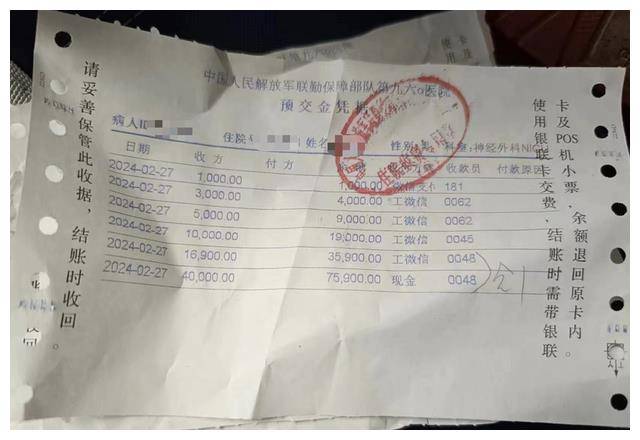 中国人民解放军联勤保障部队第九六〇医院
预交金凭据
病人ID
住院
姓名
性别
科室:神经外科NICU
日期 收方 付方 收款员 付款原因
2024-02-27 1,000.00 1,000.00 微信支付 181
3,000.00 4,000.00 工微信 0062
2024-02-27 5,000.00 9,000.00 工微信 0062
10,000.00 19,000.00 工微信 0046
2024-02-27 16,900.00 35,900.00 工微信 0048
2024-02-27 40,000.00 75,900.00 现金 0048
请妥善保管此收据,结账时收回。
使用银联卡交费,结账时需带银联
卡及POS机小票,余额退回原卡内。